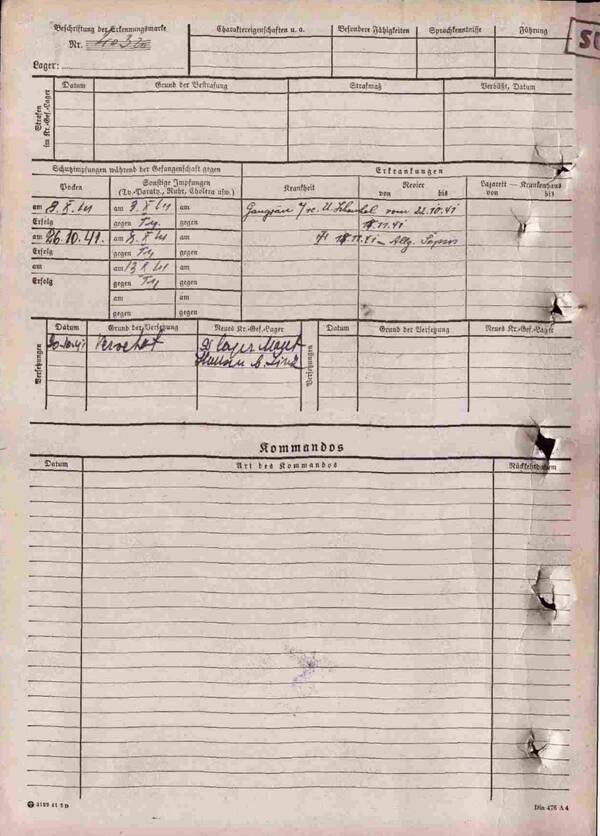 Beschriftung der Erkennungsmarke
Nr.
Lager:
Charaktereigenschaften u. a.
Besondere Fähigkeiten
Sprachkenntnisse
Führung
Strafen im Kr.-Gef.-Lager
Datum
Grund der Bestrafung
Strafmaß
Verbüßt, Datum
Schutzimpfungen während der Gefangenschaft gegen
Erkrankungen
Pocken
Sonstige Impfungen
(Ty.-Paraty., Ruhr, Cholera usw.)
Krankheit
Revier
von bis
Lazarett — Krankenhaus
von bis
am 8. X. 41 am 3. X 41 am
Erfolg gegen Ty. gegen
Gangrän vom 22.10.41
18.11.41
am 26.10.41. am 8. X 41 am
Erfolg gegen Ty gegen
18.11.41 – Allg. Sepsis
am am 13 X 41 am
Erfolg gegen Ty gegen
am am
gegen gegen
Versetzungen
Datum
Grund der Versetzung
Neues Kr.-Gef.-Lager
Versetzungen
Datum
Grund der Versetzung
Neues Kr.-Gef.-Lager
20.10.41 lager Maut
hausen b. Linz
Kommandos
Datum
Art des Kommandos
Rückkehrdatum
Din 476 A 4